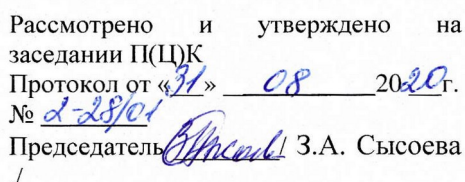 Рассмотрено и утверждено на
заседании П(Ц)К
Протокол от «31» 08 2020г.
№ 2-28/01
Председатель / З.А. Сысоева
/